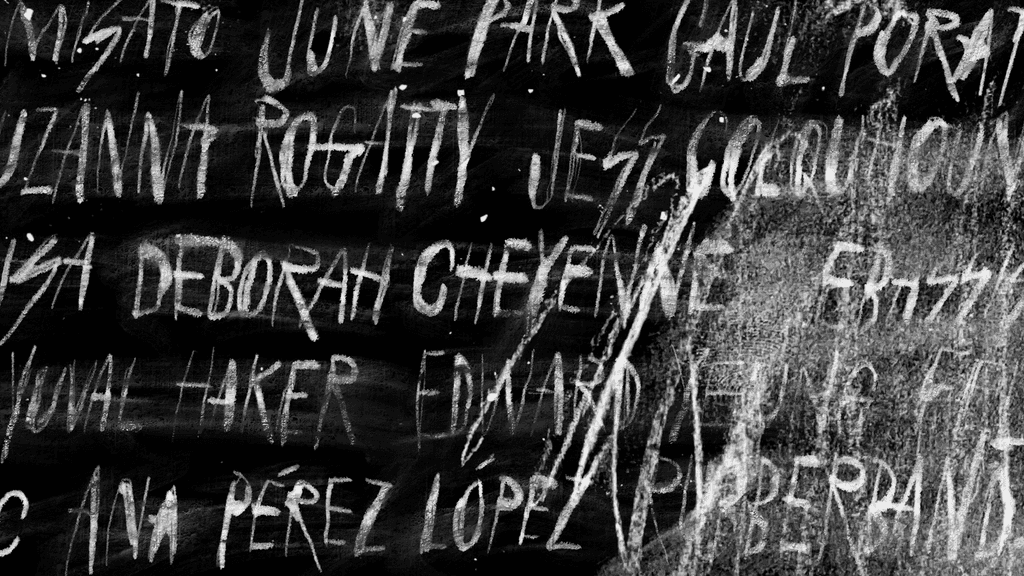 MISATO JUNE PARK GAUL PORAT
UZANNA ROGATTY JESS COLQUHOUN
SA DEBORAH CHEYENNE
YUVAL HAKER EDWARD YEUNG
C ANA PÉREZ LÓPEZ